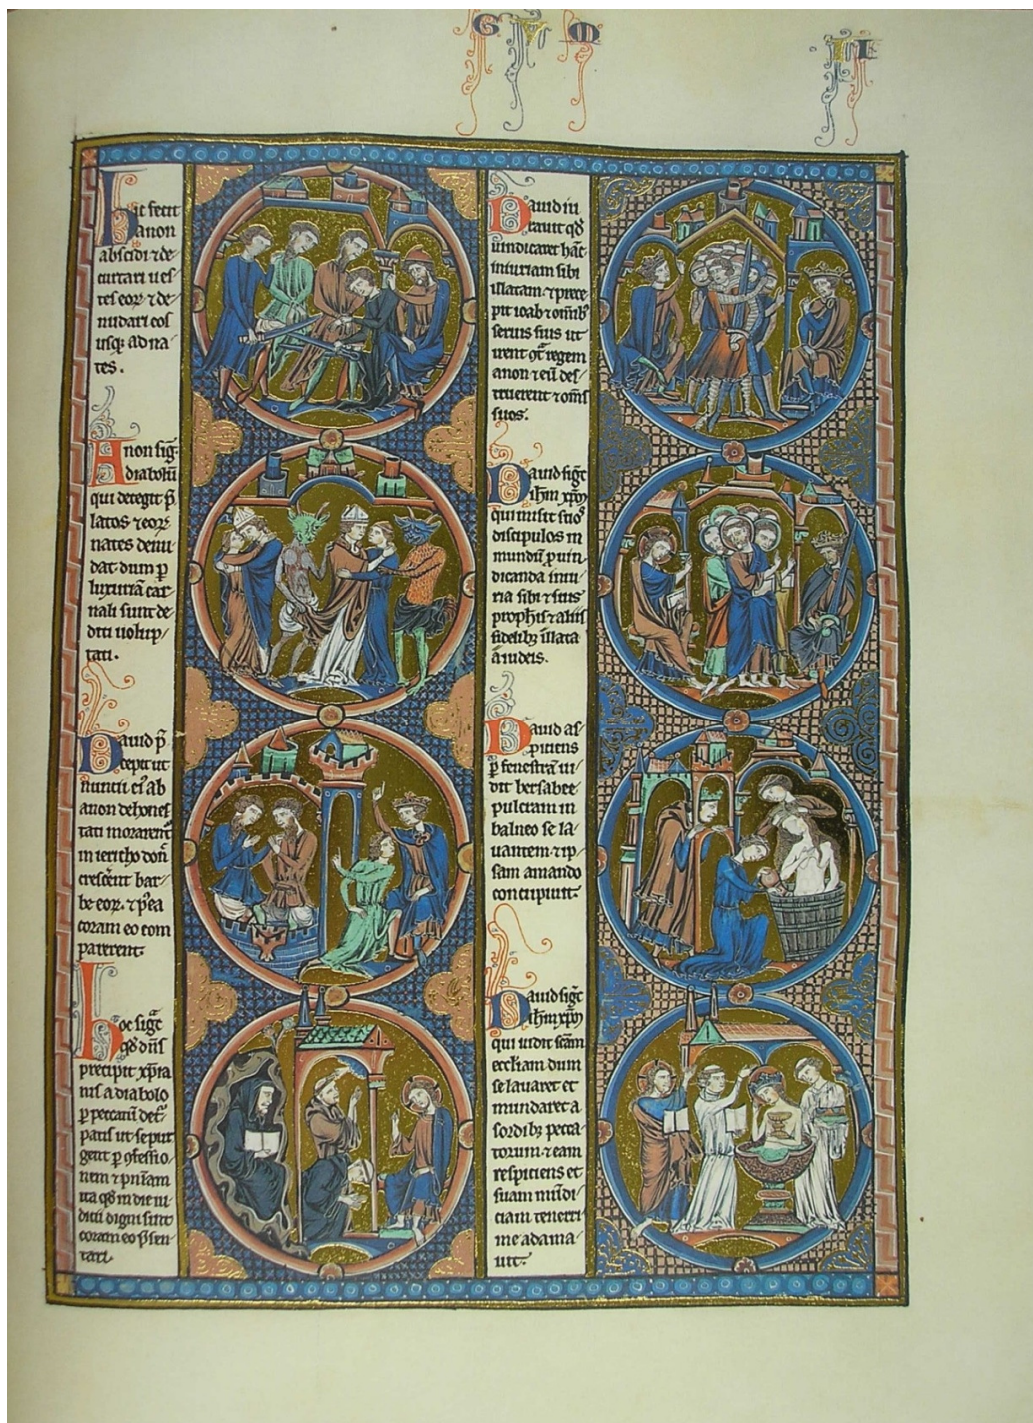 G V M
I L
Hic fecit
anon
abscidi ⁊ de-
curtari ues
tes eoꝝ ⁊ de-
nudari eos
usqꝫ ad na-
tes.
Anon sig̅
diabolū
qui detegit p̄
latos ⁊ eoꝝ
nates denu
dat dum p
luxuriā car
nali sunt de-
diti uolup-
tati.
Dauid p̄
cepit ut
nuncii ei᷒ ab
anon dehones
tati morarent᷑
in iericho don̄
cresce̅nt bar-
be eoꝝ. ⁊ p᷒ea
coram eo com
parerent.
Hoc sig̅t
qď dn̄s
precipit xp̄ia
nis a diabolo
p peccatū det᷑-
patis ut se pur
gent p ꝯfessio-
nem ⁊ pn̄iam
ita qď in die iu-
dicii digni sint
coram eo p̄sen-
tari.
Dauid iu
rauit qď
uindicaret hāc
iniuriam sibi
illatam. ⁊ prece
pit ioab ⁊ omībꝫ
seruis suis ut
irent ꝯͭ regem
anon ⁊ eū des-
truerent ⁊ om̄s
suos.
Dauid sig̅t
ihm̄ xp̄m
qui misit suos
discipulos in
mundū ꝓ uin-
dicanda iniu-
ria sibi ⁊ suis
proph̄is ⁊ aliis
fidelibꝫ illata
a iudeis.
Dauid as-
piciens
p fenestrā ui-
dit bersabee
pulcram in
balneo se la-
uantem ⁊ ip-
sam amando
concupiuit.
Dauid sig̅t
ihm̄ xp̄m
qui uidit scām
eccl̄iam dum
se lauaret et
mundaret a
sordibꝫ pecca-
torum. ⁊ eam
respiciens et
suam mūdi-
ciam tenerri
me adama-
uit.